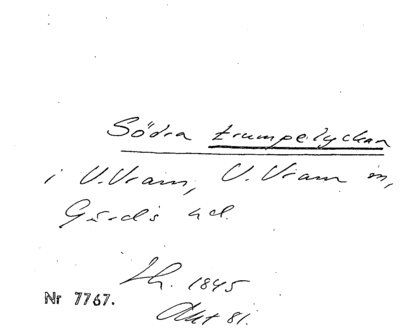 Södra trumpelyckan
i V. Vram, V. Vram sn,
Gärds hd.
Sk. 1845
Akt 81.
Nr 7767.